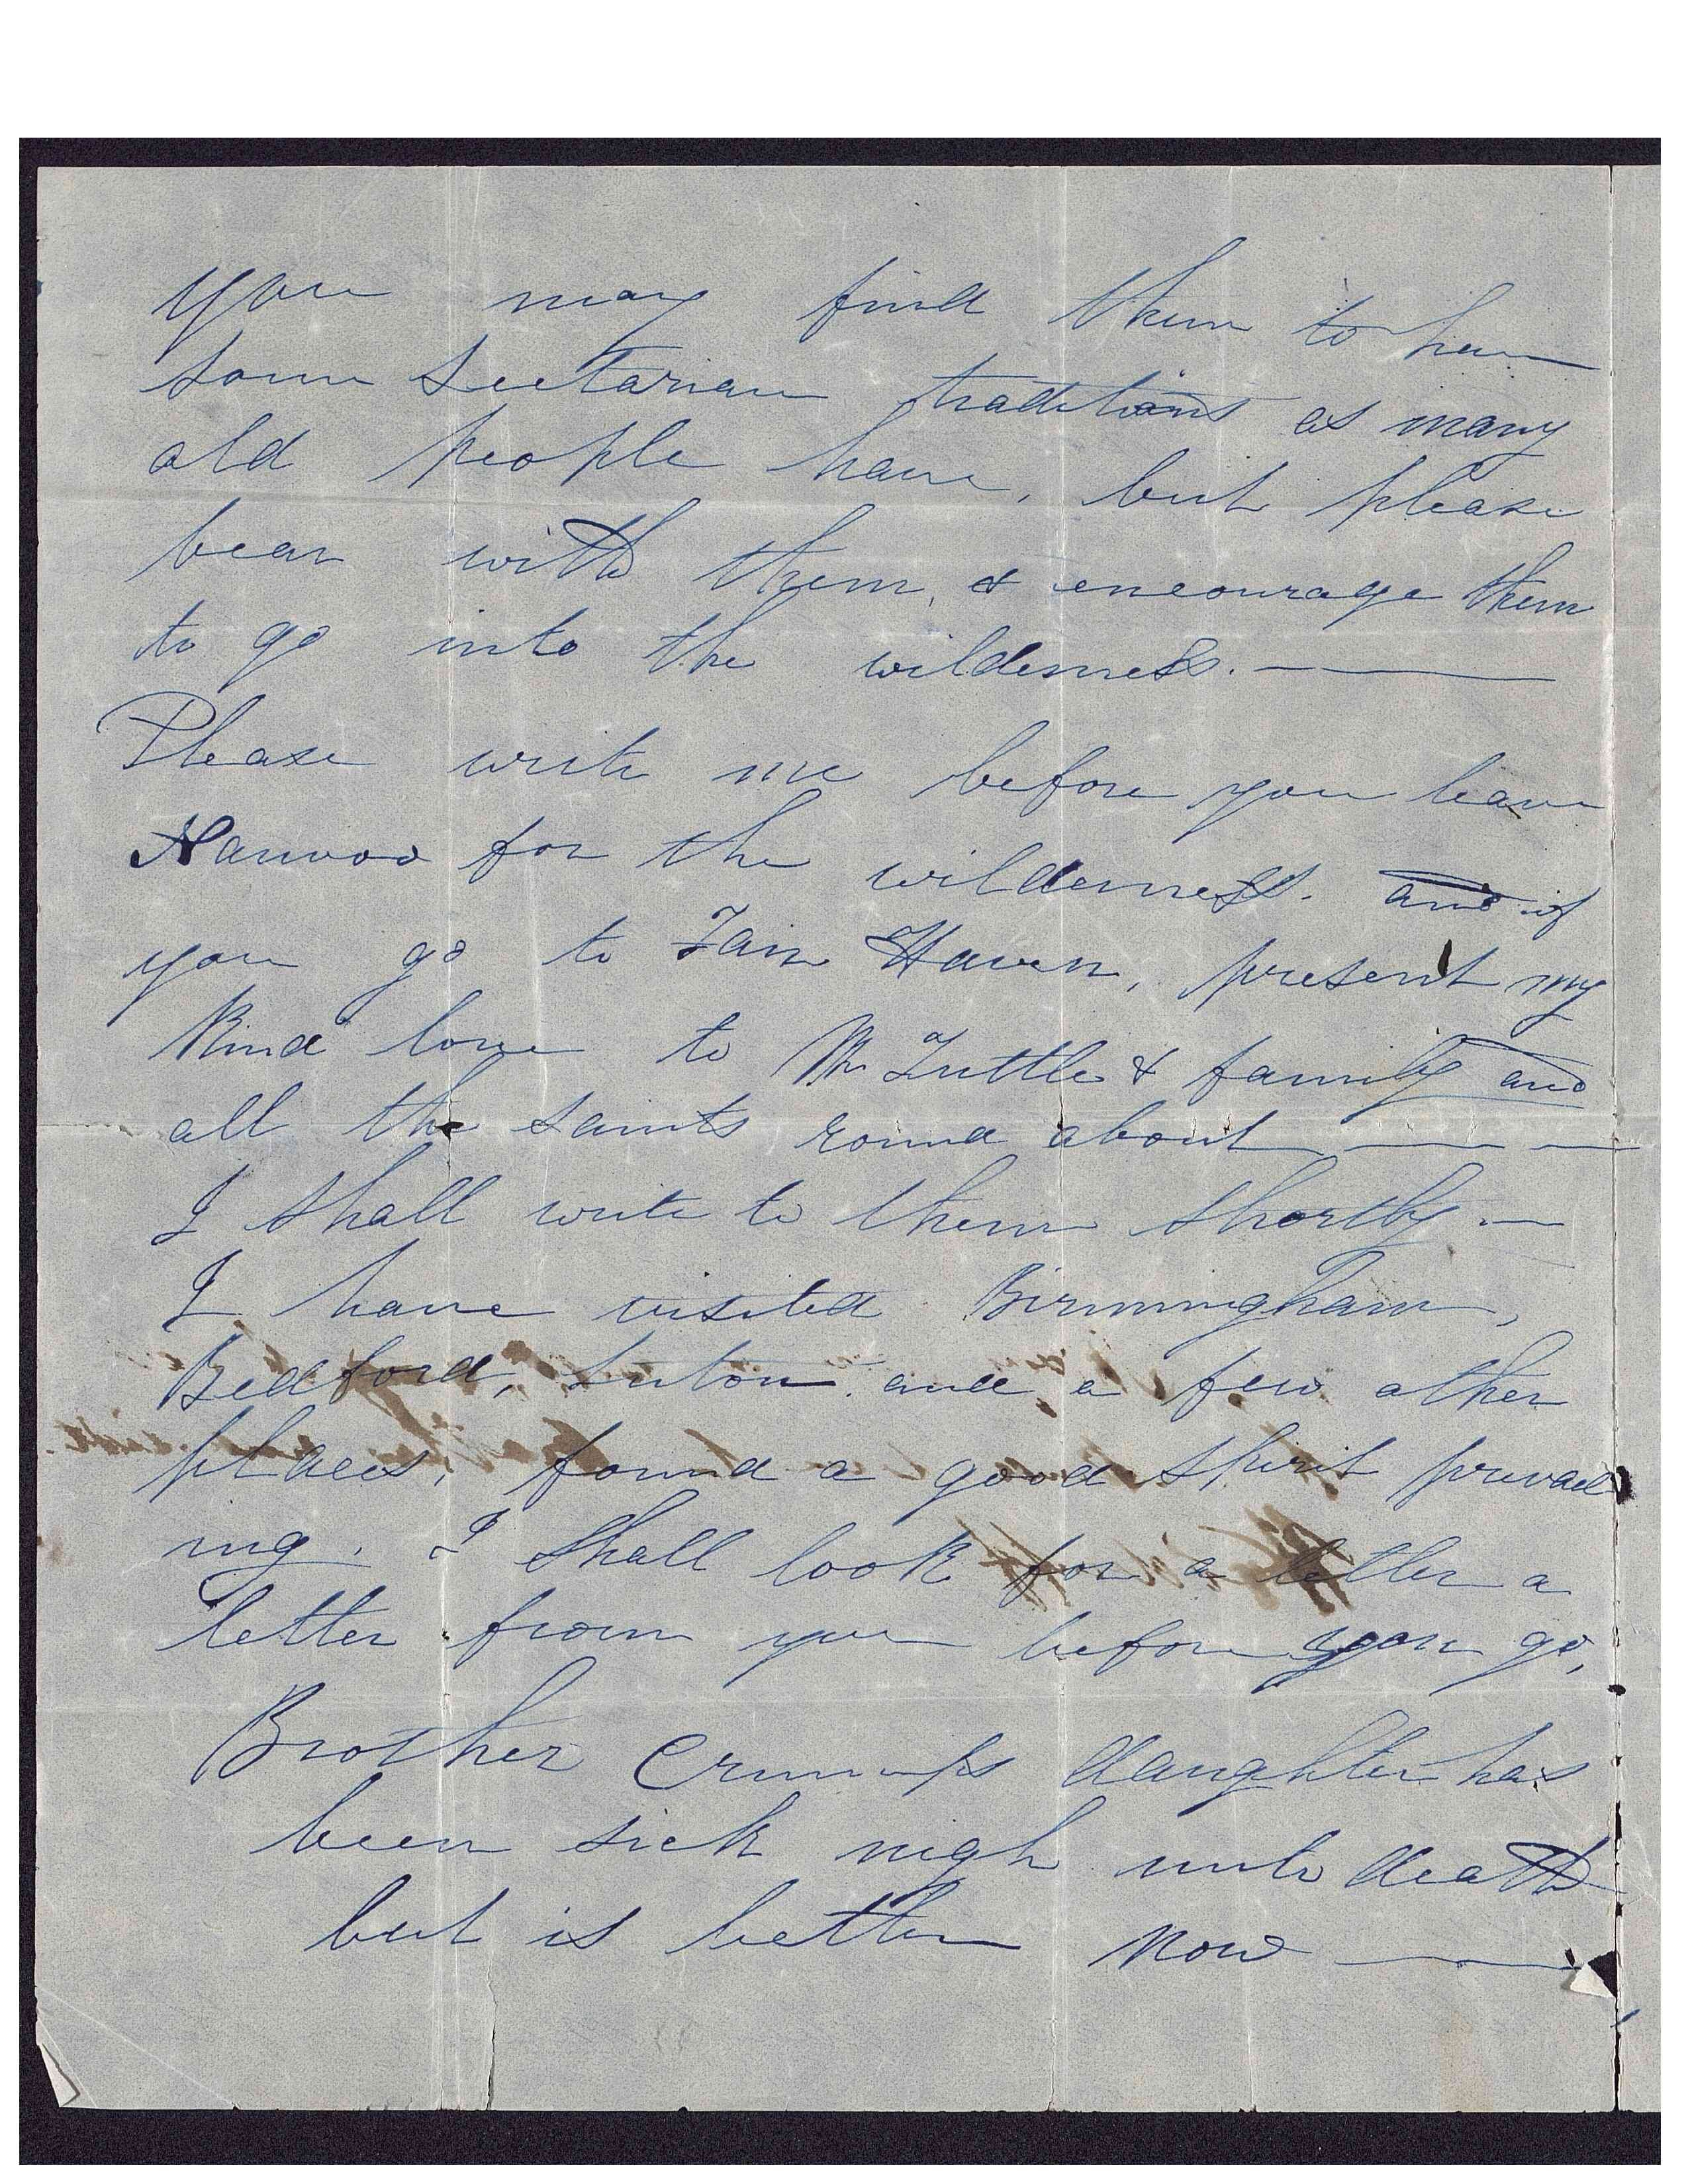 you may find them to have
some sectarian traditions as many
old people have, but please
bear with them, & encourage them
to go into the wilderness. —
Please write me before you leave
Nauvoo for the wilderness. and if
you go to Fair Haven, present my
kind love to Mr Tuttle & family and
all the saints round about — — —
I shall write to them shortly. —
I have visited Birmingham,
Bedford, Luton. and a few other
places, found a good spirit prevail
ing. I shall look for a letter a
letter from you before you go,
Brother Crumps daughter has
been sick nigh unto death
but is better now —